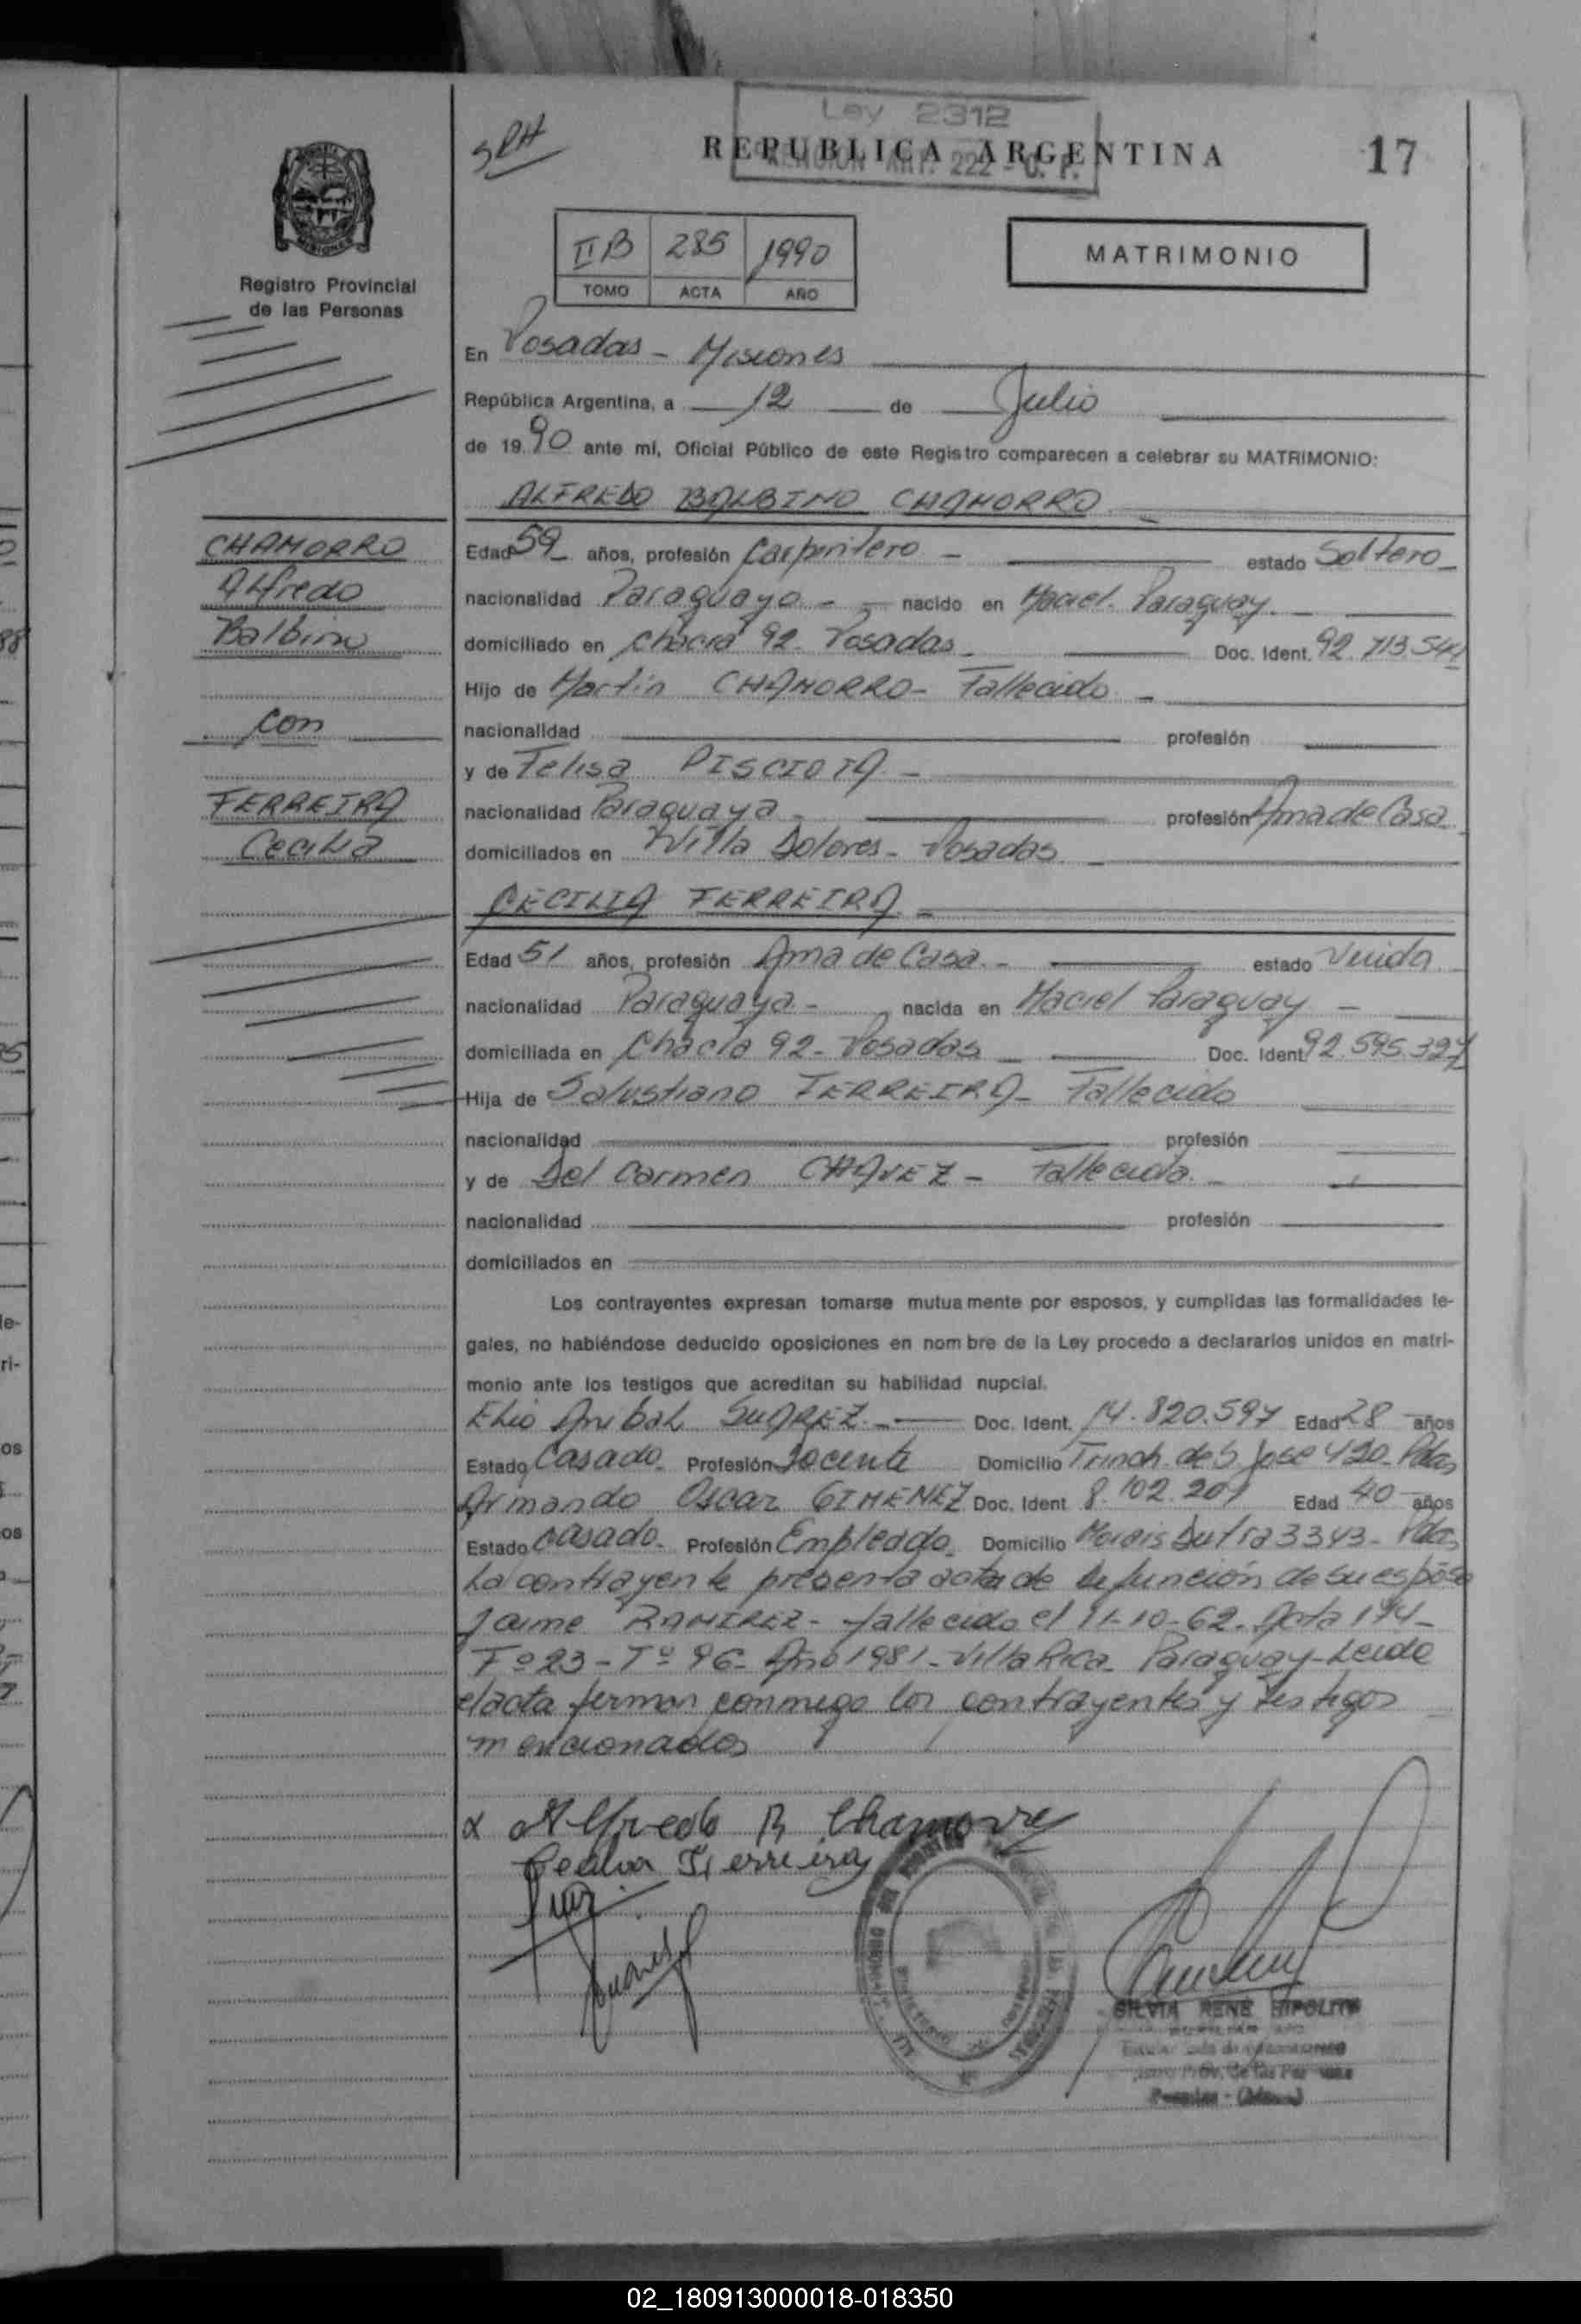 Ley 2312
SRH
REPUBLICA ARGENTINA
17
REMCION ART. 222 - C. P.
IIB 285 1990
TOMO ACTA AÑO
MATRIMONIO
Registro Provincial
de las Personas
En Posadas - Misiones
República Argentina, a 12 de Julio
de 1990 ante mí, Oficial Público de este Registro comparecen a celebrar su MATRIMONIO:
ALFREDO BALBINO CHAMORRO
CHAMORRO
Alfredo
Balbino
con
FERREIRA
Cecilia
Edad 59 años, profesión Carpintero - estado Soltero
nacionalidad Paraguayo - nacido en Maciel. Paraguay.
domiciliado en chacra 92 - Posadas - Doc. Ident. 92.713.544
Hijo de Martín CHAMORRO - Fallecido -
nacionalidad profesión
y de Felisa PISCIOTA -
nacionalidad Paraguaya - profesión Ama de Casa
domiciliados en Villa Dolores - Posadas
CECILIA FERREIRA -
Edad 51 años, profesión Ama de Casa. - estado Viuda
nacionalidad Paraguaya - nacida en Maciel Paraguay -
domiciliada en Chacra 92 - Posadas - Doc. Ident. 92.595.327
Hija de Salustiano FERREIRA - Fallecido
nacionalidad profesión
y de Del Carmen CHAVEZ - Fallecida. -
nacionalidad profesión
domiciliados en
Los contrayentes expresan tomarse mutuamente por esposos, y cumplidas las formalidades le-
gales, no habiéndose deducido oposiciones en nombre de la Ley procedo a declararlos unidos en matri-
monio ante los testigos que acreditan su habilidad nupcial.
Elio Anibal SUAREZ. - Doc. Ident. 14.820.597 Edad 28 años
Estado Casado. Profesión Docente Domicilio Trinch. de S José 420 - Pdas
Armando Oscar GIMENEZ Doc. Ident 8.102.201 Edad 40 años
Estado casado. Profesión Empleado. Domicilio Dutra 3343 - Pdas
La contrayente presenta acta de defunción de su esposo
Jaime RAMIREZ - fallecido el 11-10-62. Acta 174 -
Fº 23 - Tº 96 - Año 1981 - Villa Rica - Paraguay - Leida
el acta firman conmigo los contrayentes y testigos
mencionados
x Alfredo B Chamorro
Cecilia Ferreira
SILVIA RENE HIPOLITO
Prov. de las Personas
Posadas - (Mnes.)
02_180913000018-018350